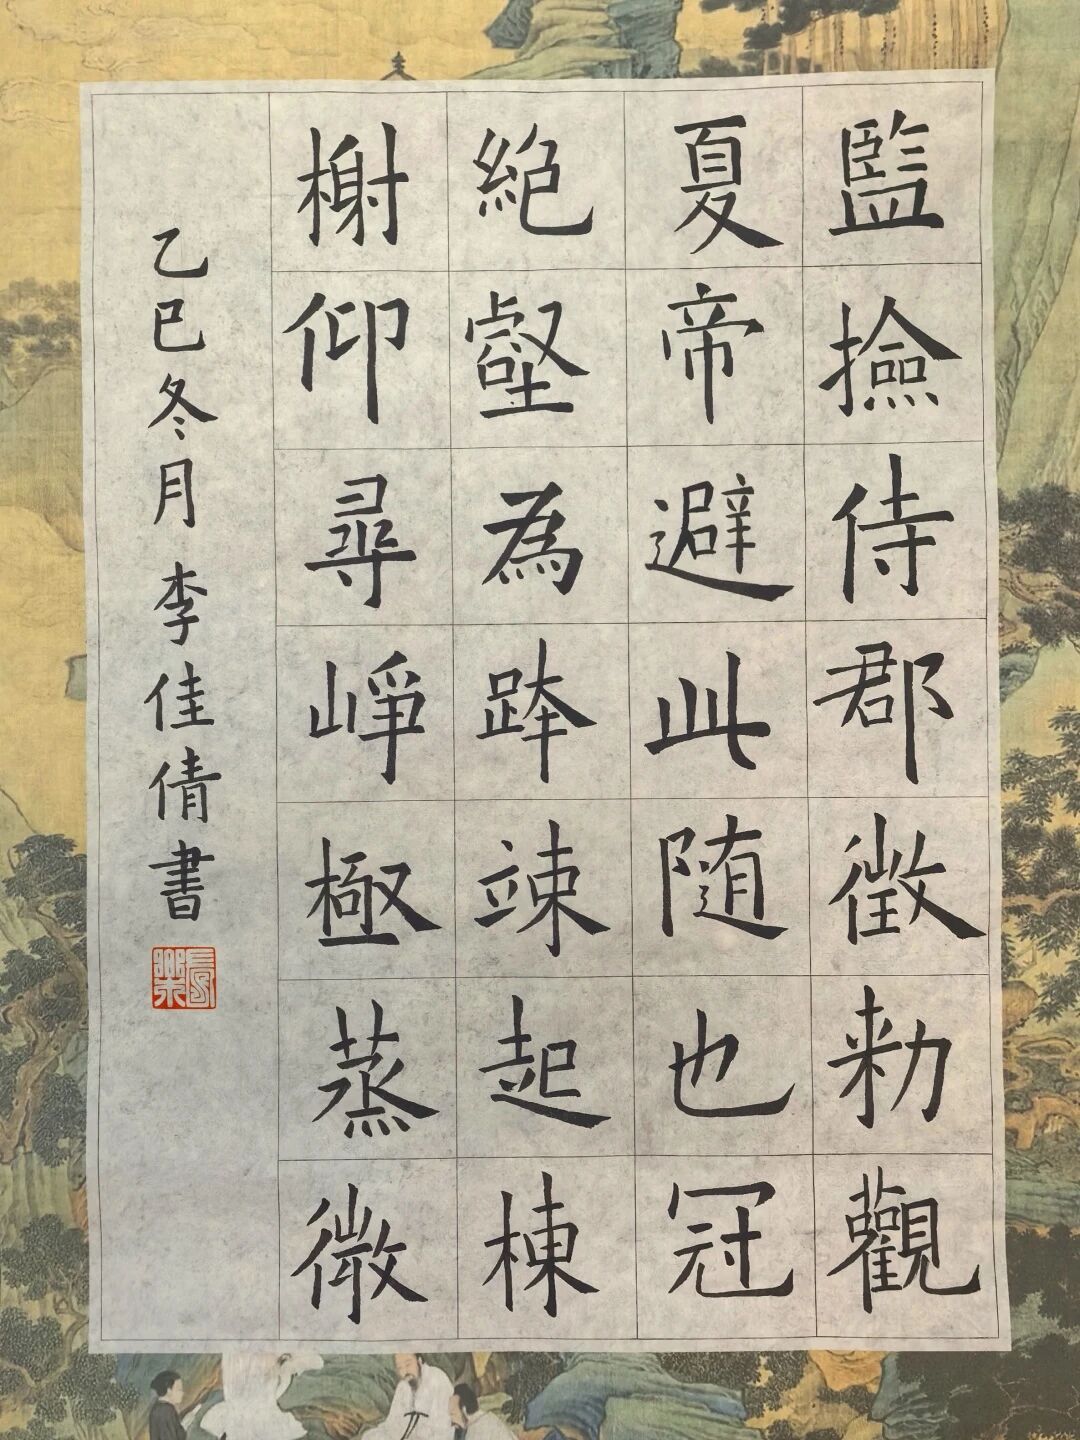 監撿侍郡徵勑觀
夏帝避此随也冠
絶壑為跨竦起棟
榭仰尋崢極蒸微
乙巳冬月李佳倩書
長樂